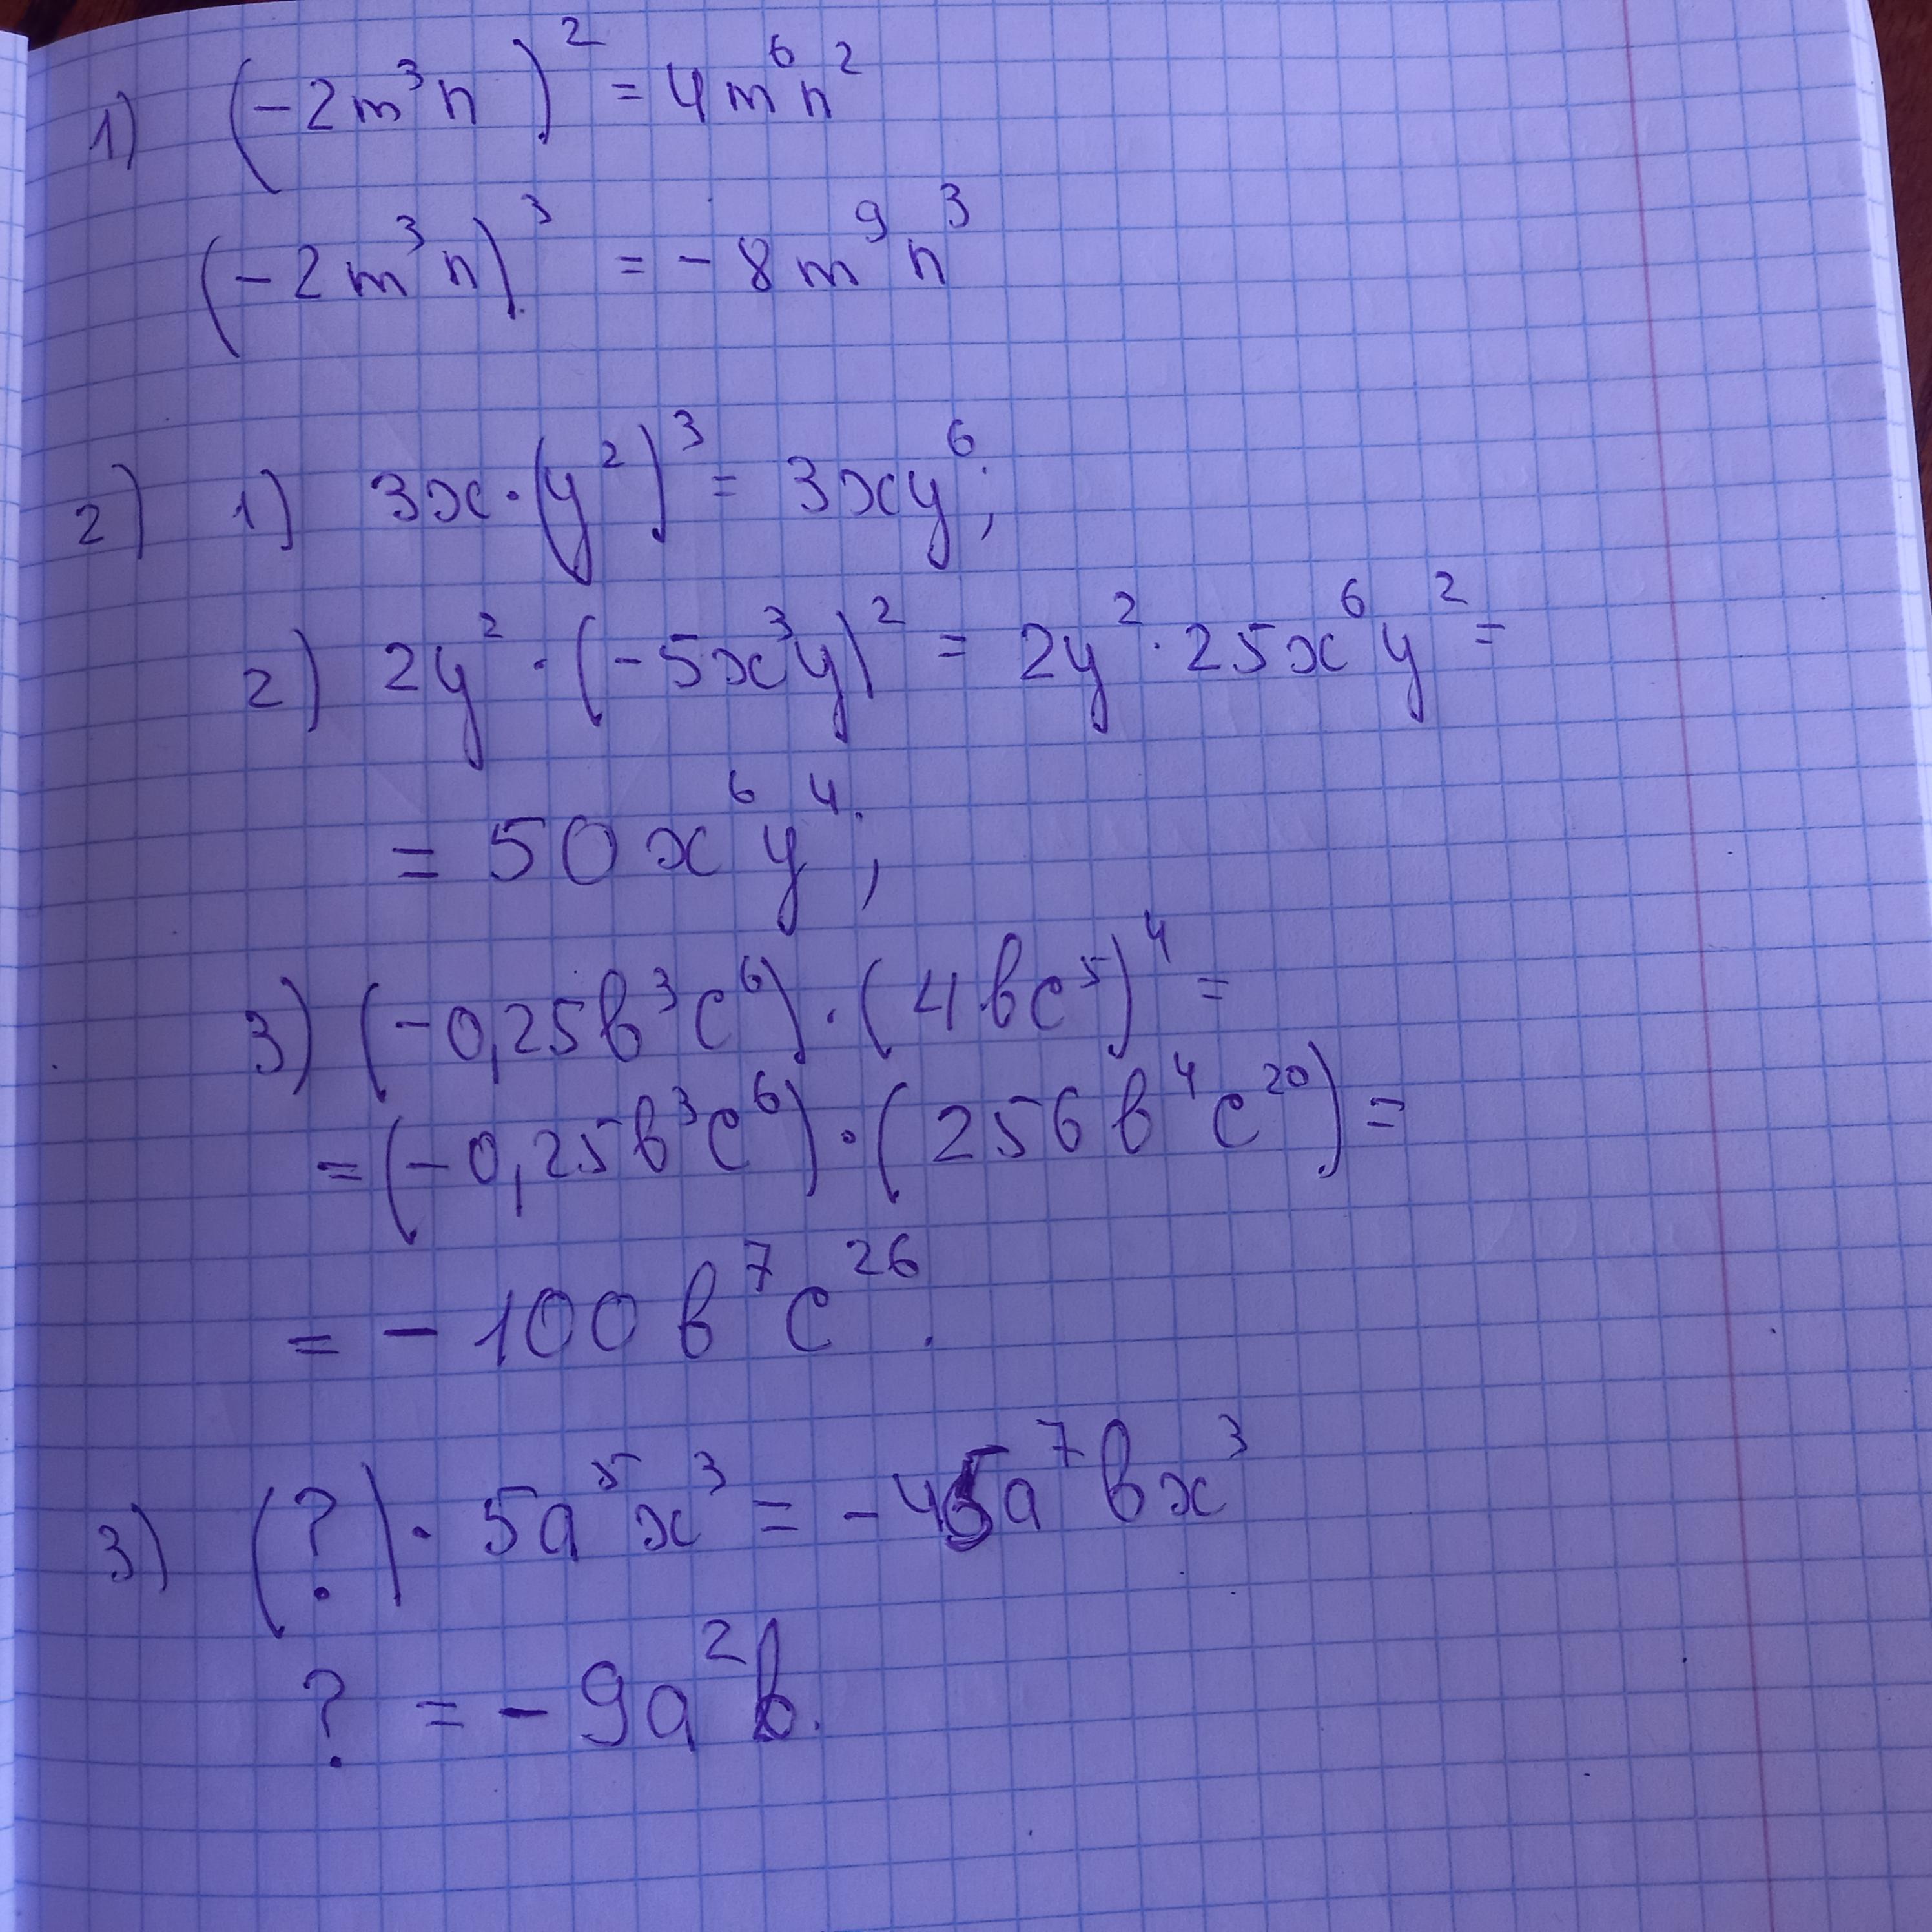 1) (-2m³n)² = 4m⁶n²
(-2m³n)³ = -8m⁹n³
2) 1) 3x·(y²)³ = 3xy⁶;
2) 2y²·(-5x³y)² = 2y²·25x⁶y² =
= 50x⁶y⁴;
3) (-0,25в³c⁶)·(4вc⁵)⁴ =
= (-0,25в³c⁶)·(256в⁴c²⁰) =
= -100в⁷c²⁶.
3) (?)·5a⁵x³ = -45a⁷вx³
? = -9a²в.